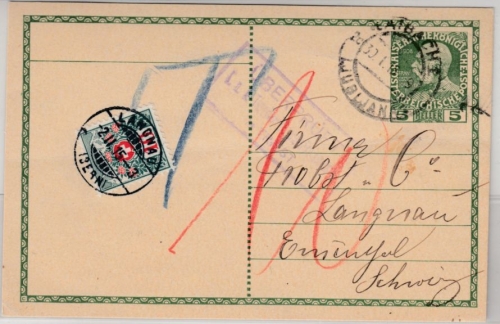 LAIBACH
LJUBLJANA
KAISERKÖNIGLICHE
ÖSTERREICHISCHE POST
5 HELLER 5
LANGNAU
(BERN)
T
10
Firma
Probst & Cº
Langnau
Emmenthal
Schweiz